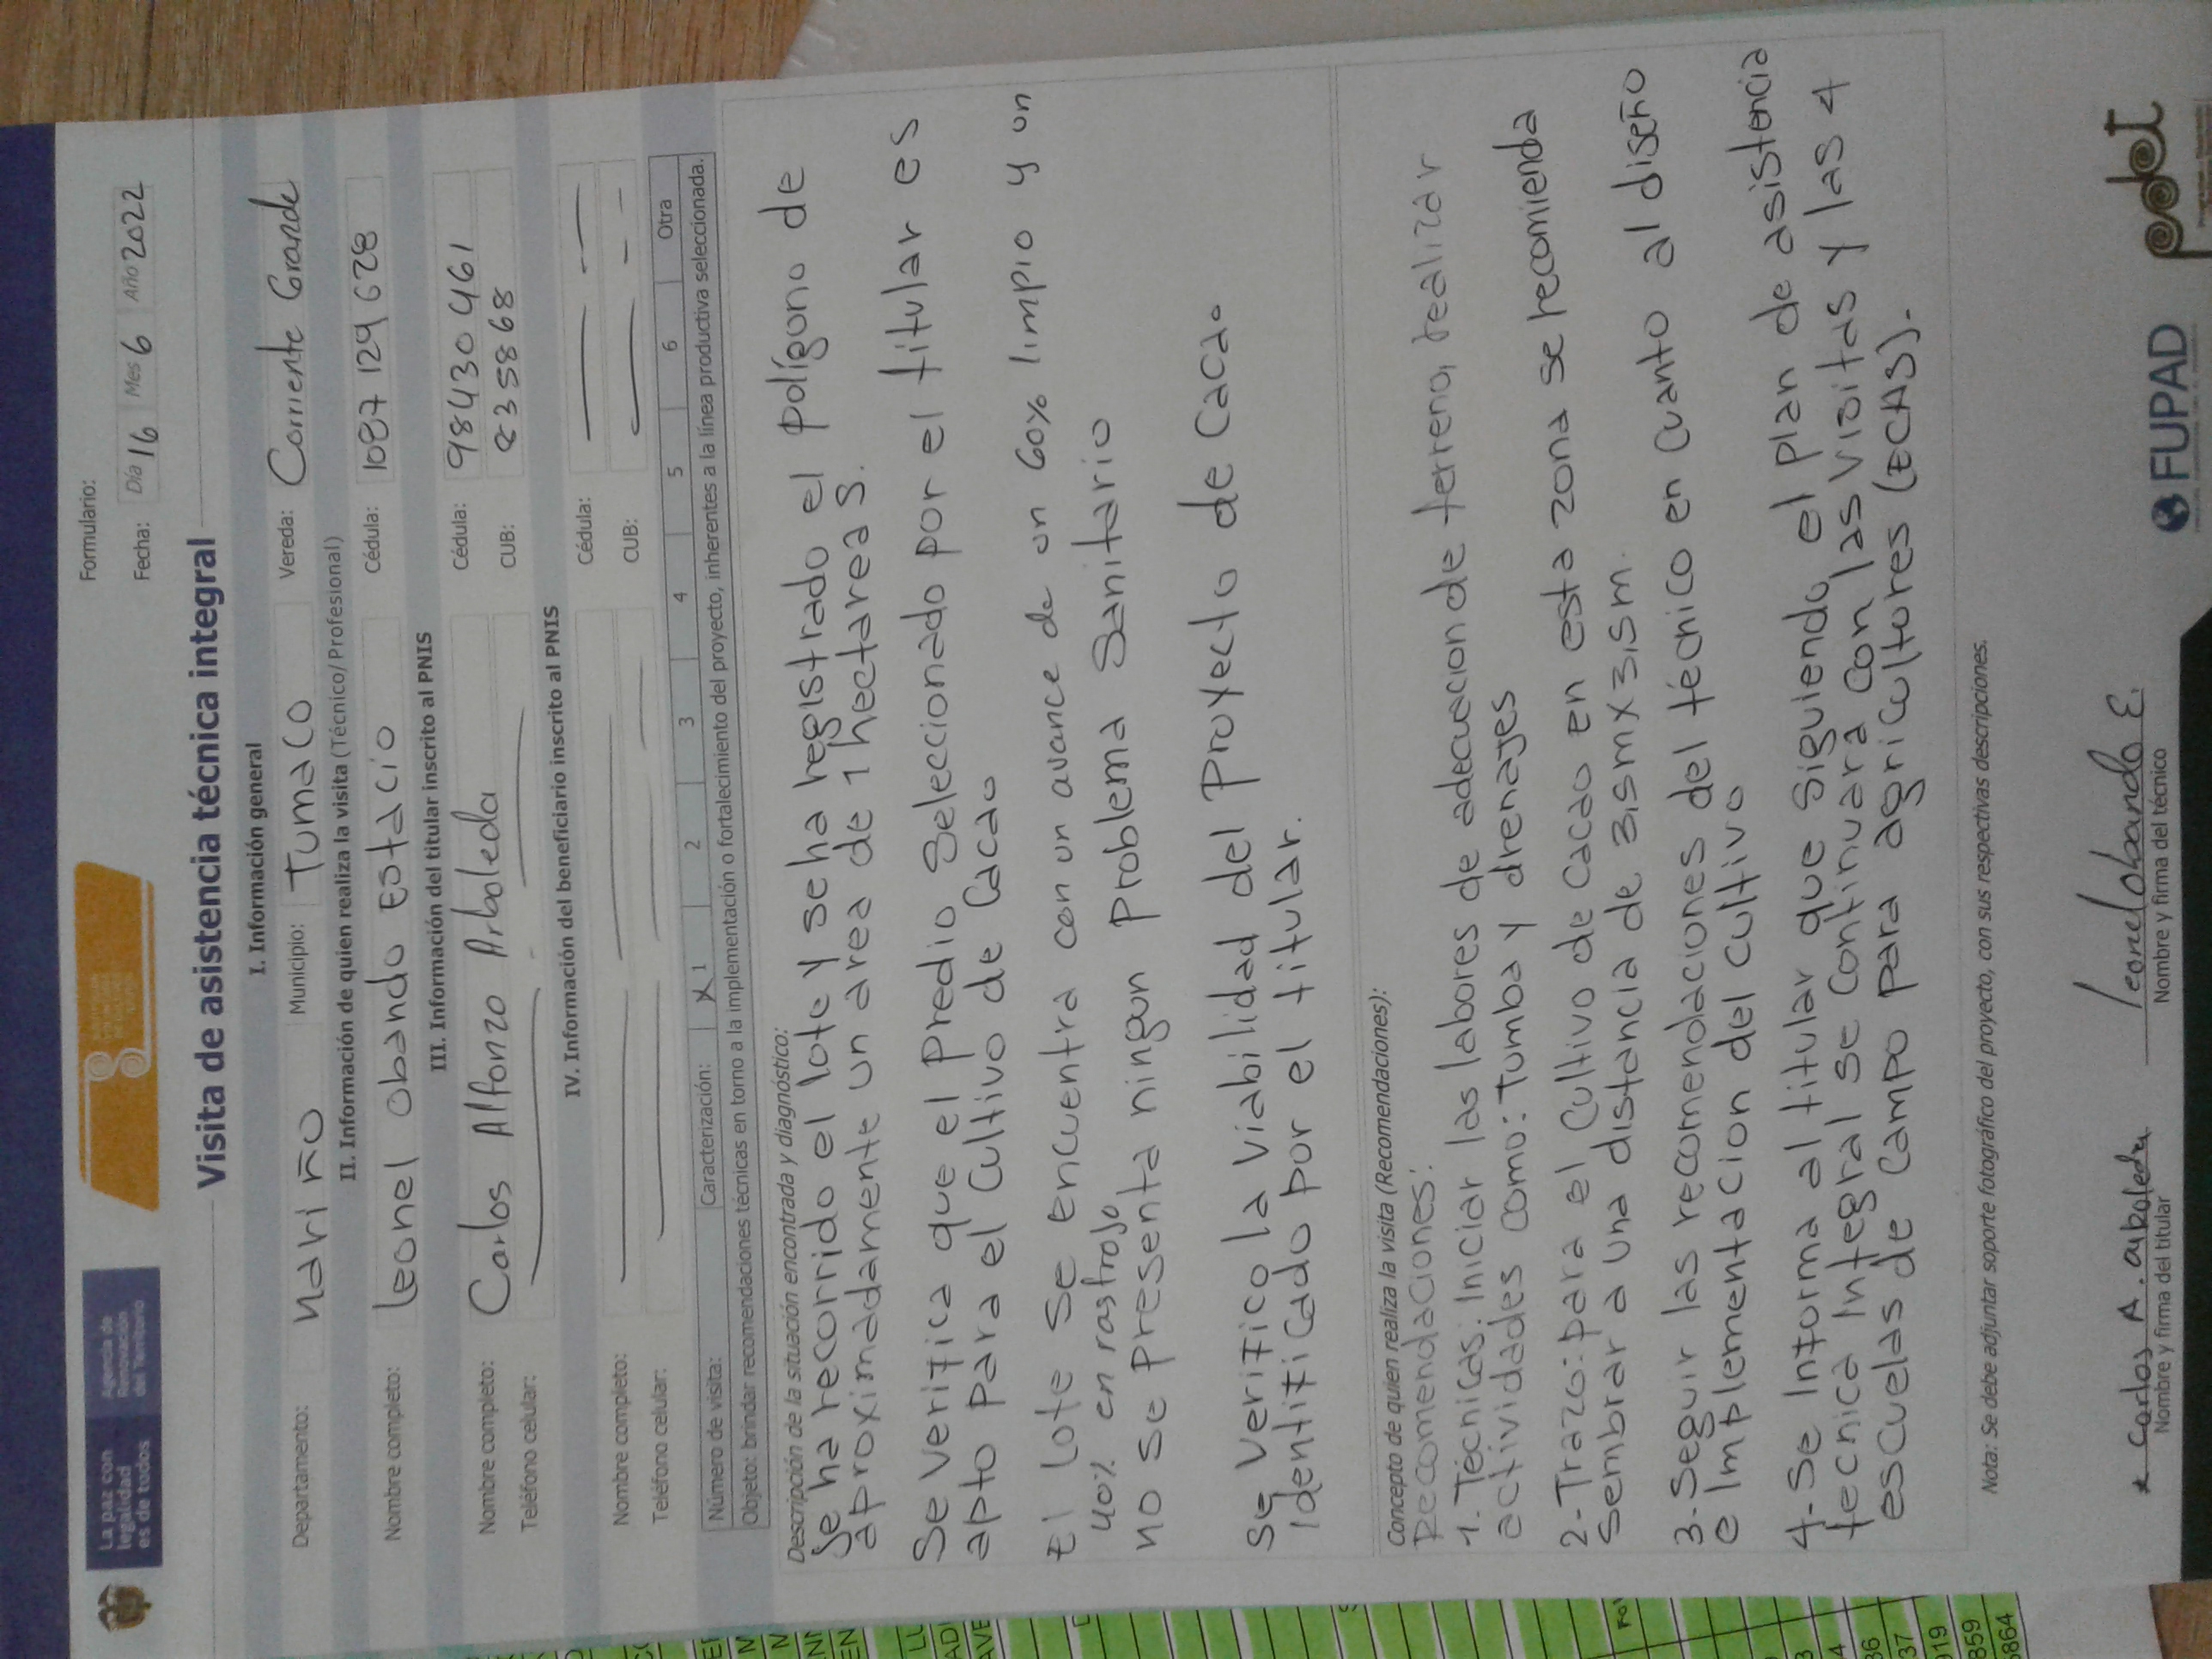 La paz con
legalidad
es de todos
Agencia de
Renovación
del Territorio
Formulario:
Fecha: Día 16 Mes 6 Año 2022
Visita de asistencia técnica integral
I. Información general
Departamento: Nariño Municipio: Tumaco Vereda: Corriente Grande
II. Información de quien realiza la visita (Técnico/Profesional)
Nombre completo: leonel obando Estacio Cédula: 1087 129 628
III. Información del titular inscrito al PNIS
Nombre completo: Carlos Alfonzo Arboleda Cédula: 98430461
Teléfono celular: CUB: 8358 68
IV. Información del beneficiario inscrito al PNIS
Nombre completo: Cédula:
Teléfono celular: CUB:
Número de visita: Caracterización: X 1 2 3 4 5 6 Otra
Objeto: brindar recomendaciones técnicas en torno a la implementación o fortalecimiento del proyecto, inherentes a la línea productiva seleccionada.
Descripción de la situación encontrada y diagnóstico:
Se ha recorrido el lote y se ha registrado el polígono de
aproximadamente un area de 1 hectareas.
Se verifica que el Predio Seleccionado por el titular es
apto para el cultivo de Cacao
El Lote se encuentra con un avance de un 60% limpio y un
40% en rastrojo
no se presenta ningun problema Sanitario
se verifico la viabilidad del Proyecto de Cacao
identificado por el titular.
Concepto de quien realiza la visita (Recomendaciones):
Recomendaciones:
1. Técnicas: Iniciar las labores de adecuacion de terreno, realizar
actividades como: Tumba y drenajes
2-Trazo: para el Cultivo de Cacao en esta zona se recomienda
sembrar a una distancia de 3,5m x 3,5m.
3-Seguir las recomendaciones del técnico en cuanto al diseño
e Implementacion del cultivo
4-Se Informa al titular que siguiendo el plan de asistencia
tecnica Integral se continuara con las visitas y las 4
escuelas de campo para agricultores (ECAS).
Nota: Se debe adjuntar soporte fotográfico del proyecto, con sus respectivas descripciones.
Carlos A. arboleda
Nombre y firma del titular
leonel obando E.
Nombre y firma del técnico
FUPAD
pdet